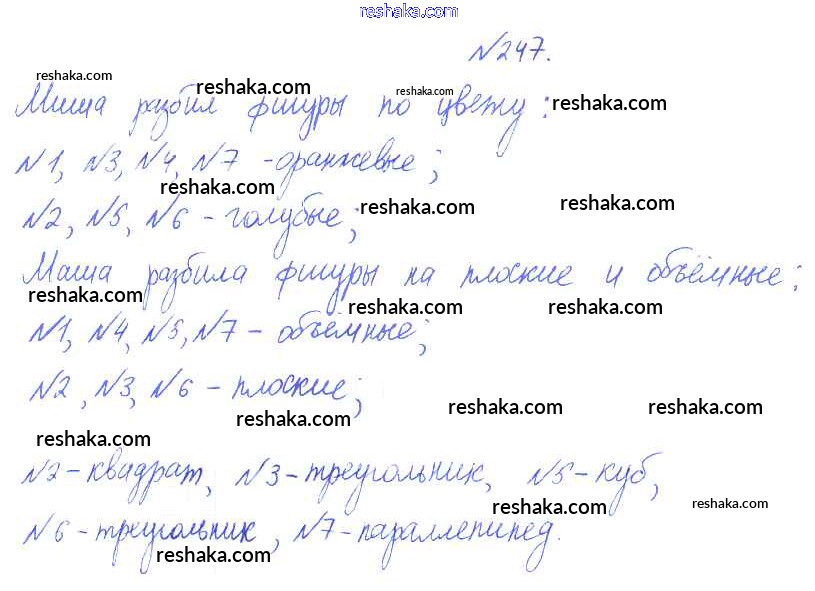 reshaka.com
№247.
reshaka.com reshaka.com reshaka.com
Миша разбил фигуры по цвету: reshaka.com
№1, №3, №4, №7 - оранжевые;
reshaka.com
№2, №5, №6 - голубые; reshaka.com reshaka.com
Маша разбила фигуры на плоские и объёмные:
reshaka.com reshaka.com reshaka.com
№1, №4, №5, №7 - объёмные;
№2, №3, №6 - плоские;
reshaka.com reshaka.com reshaka.com
reshaka.com
№2 - квадрат, №3 - треугольник, №5 - куб,
reshaka.com reshaka.com
№6 - треугольник, №7 - параллепипед.
reshaka.com